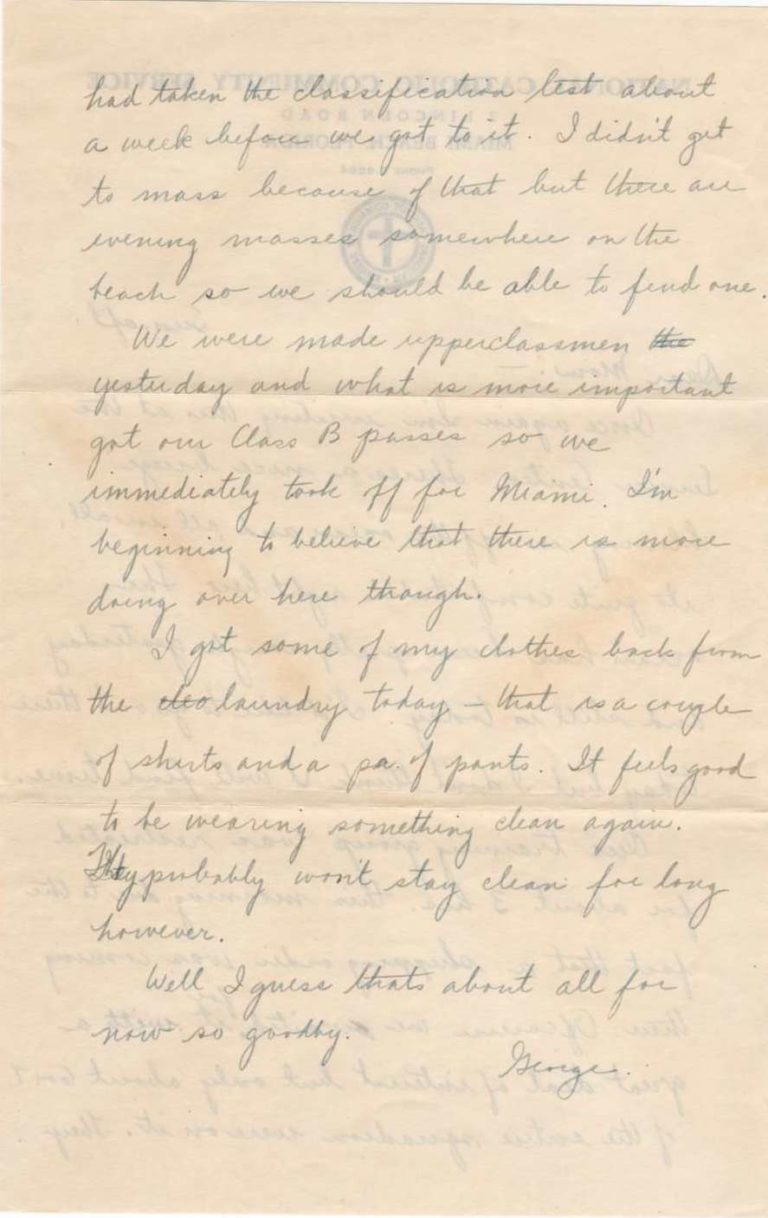 had taken the classification test about
a week before we got to it. I didn't get
to mass because of that but there are
evening masses somewhere on the
beach so we should be able to find one.
We were made upperclassmen the
yesterday and what is more important
got our Class B passes so we
immediately took off for Miami. I'm
beginning to believe that there is more
doing over here though.
I got some of my clothes back from
the clo laundry today – that is a couple
of shirts and a pa. of pants. It feels good
to be wearing something clean again.
They probably won't stay clean for long
however.
Well I guess thats about all for
now so goodby.
George.